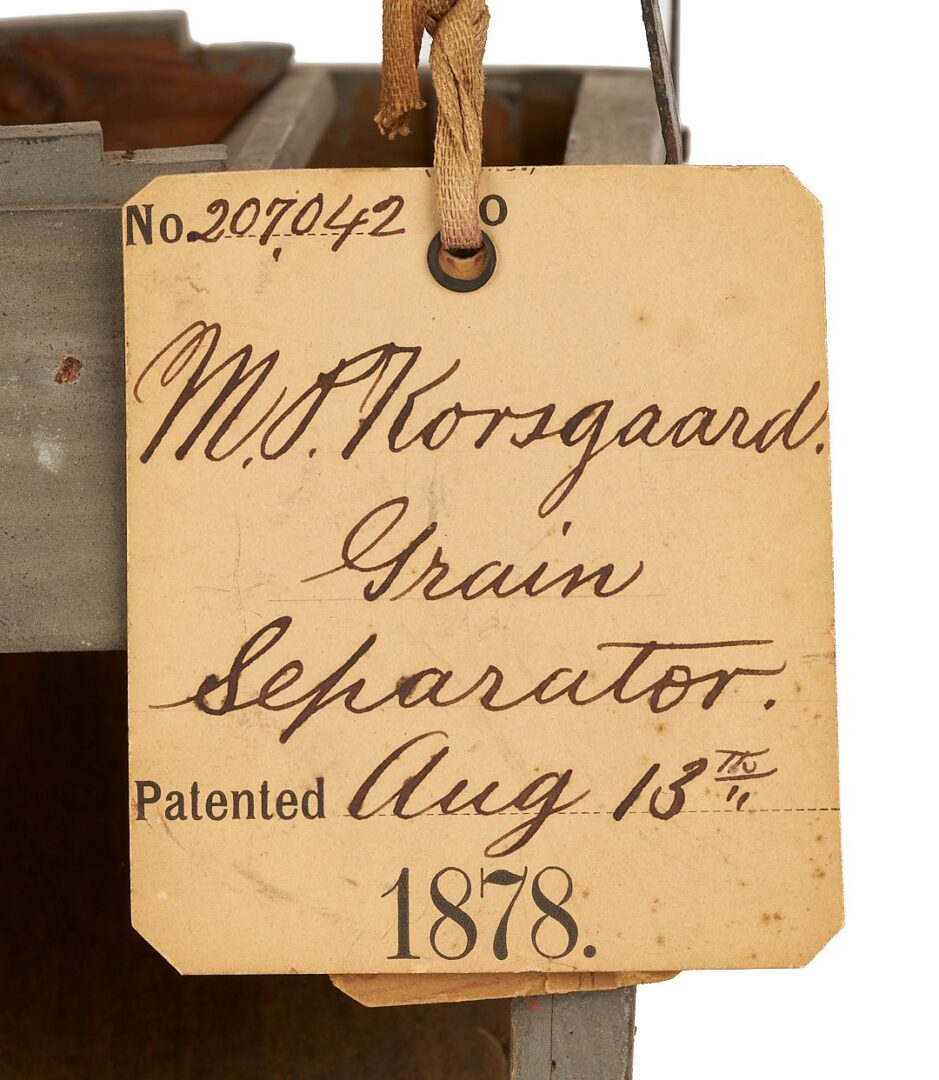 No. 207,042
M. P. Korsgaard.
Grain
Separator.
Patented Aug 13th
1878.